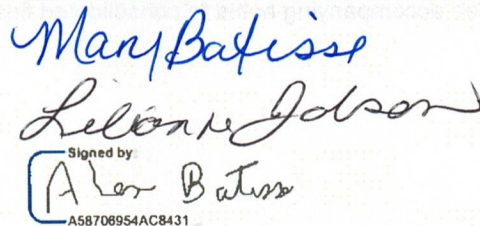 Mary Batisse
Lilianne Dobson
Signed by:
Alex Batisse
A58706954AC8431